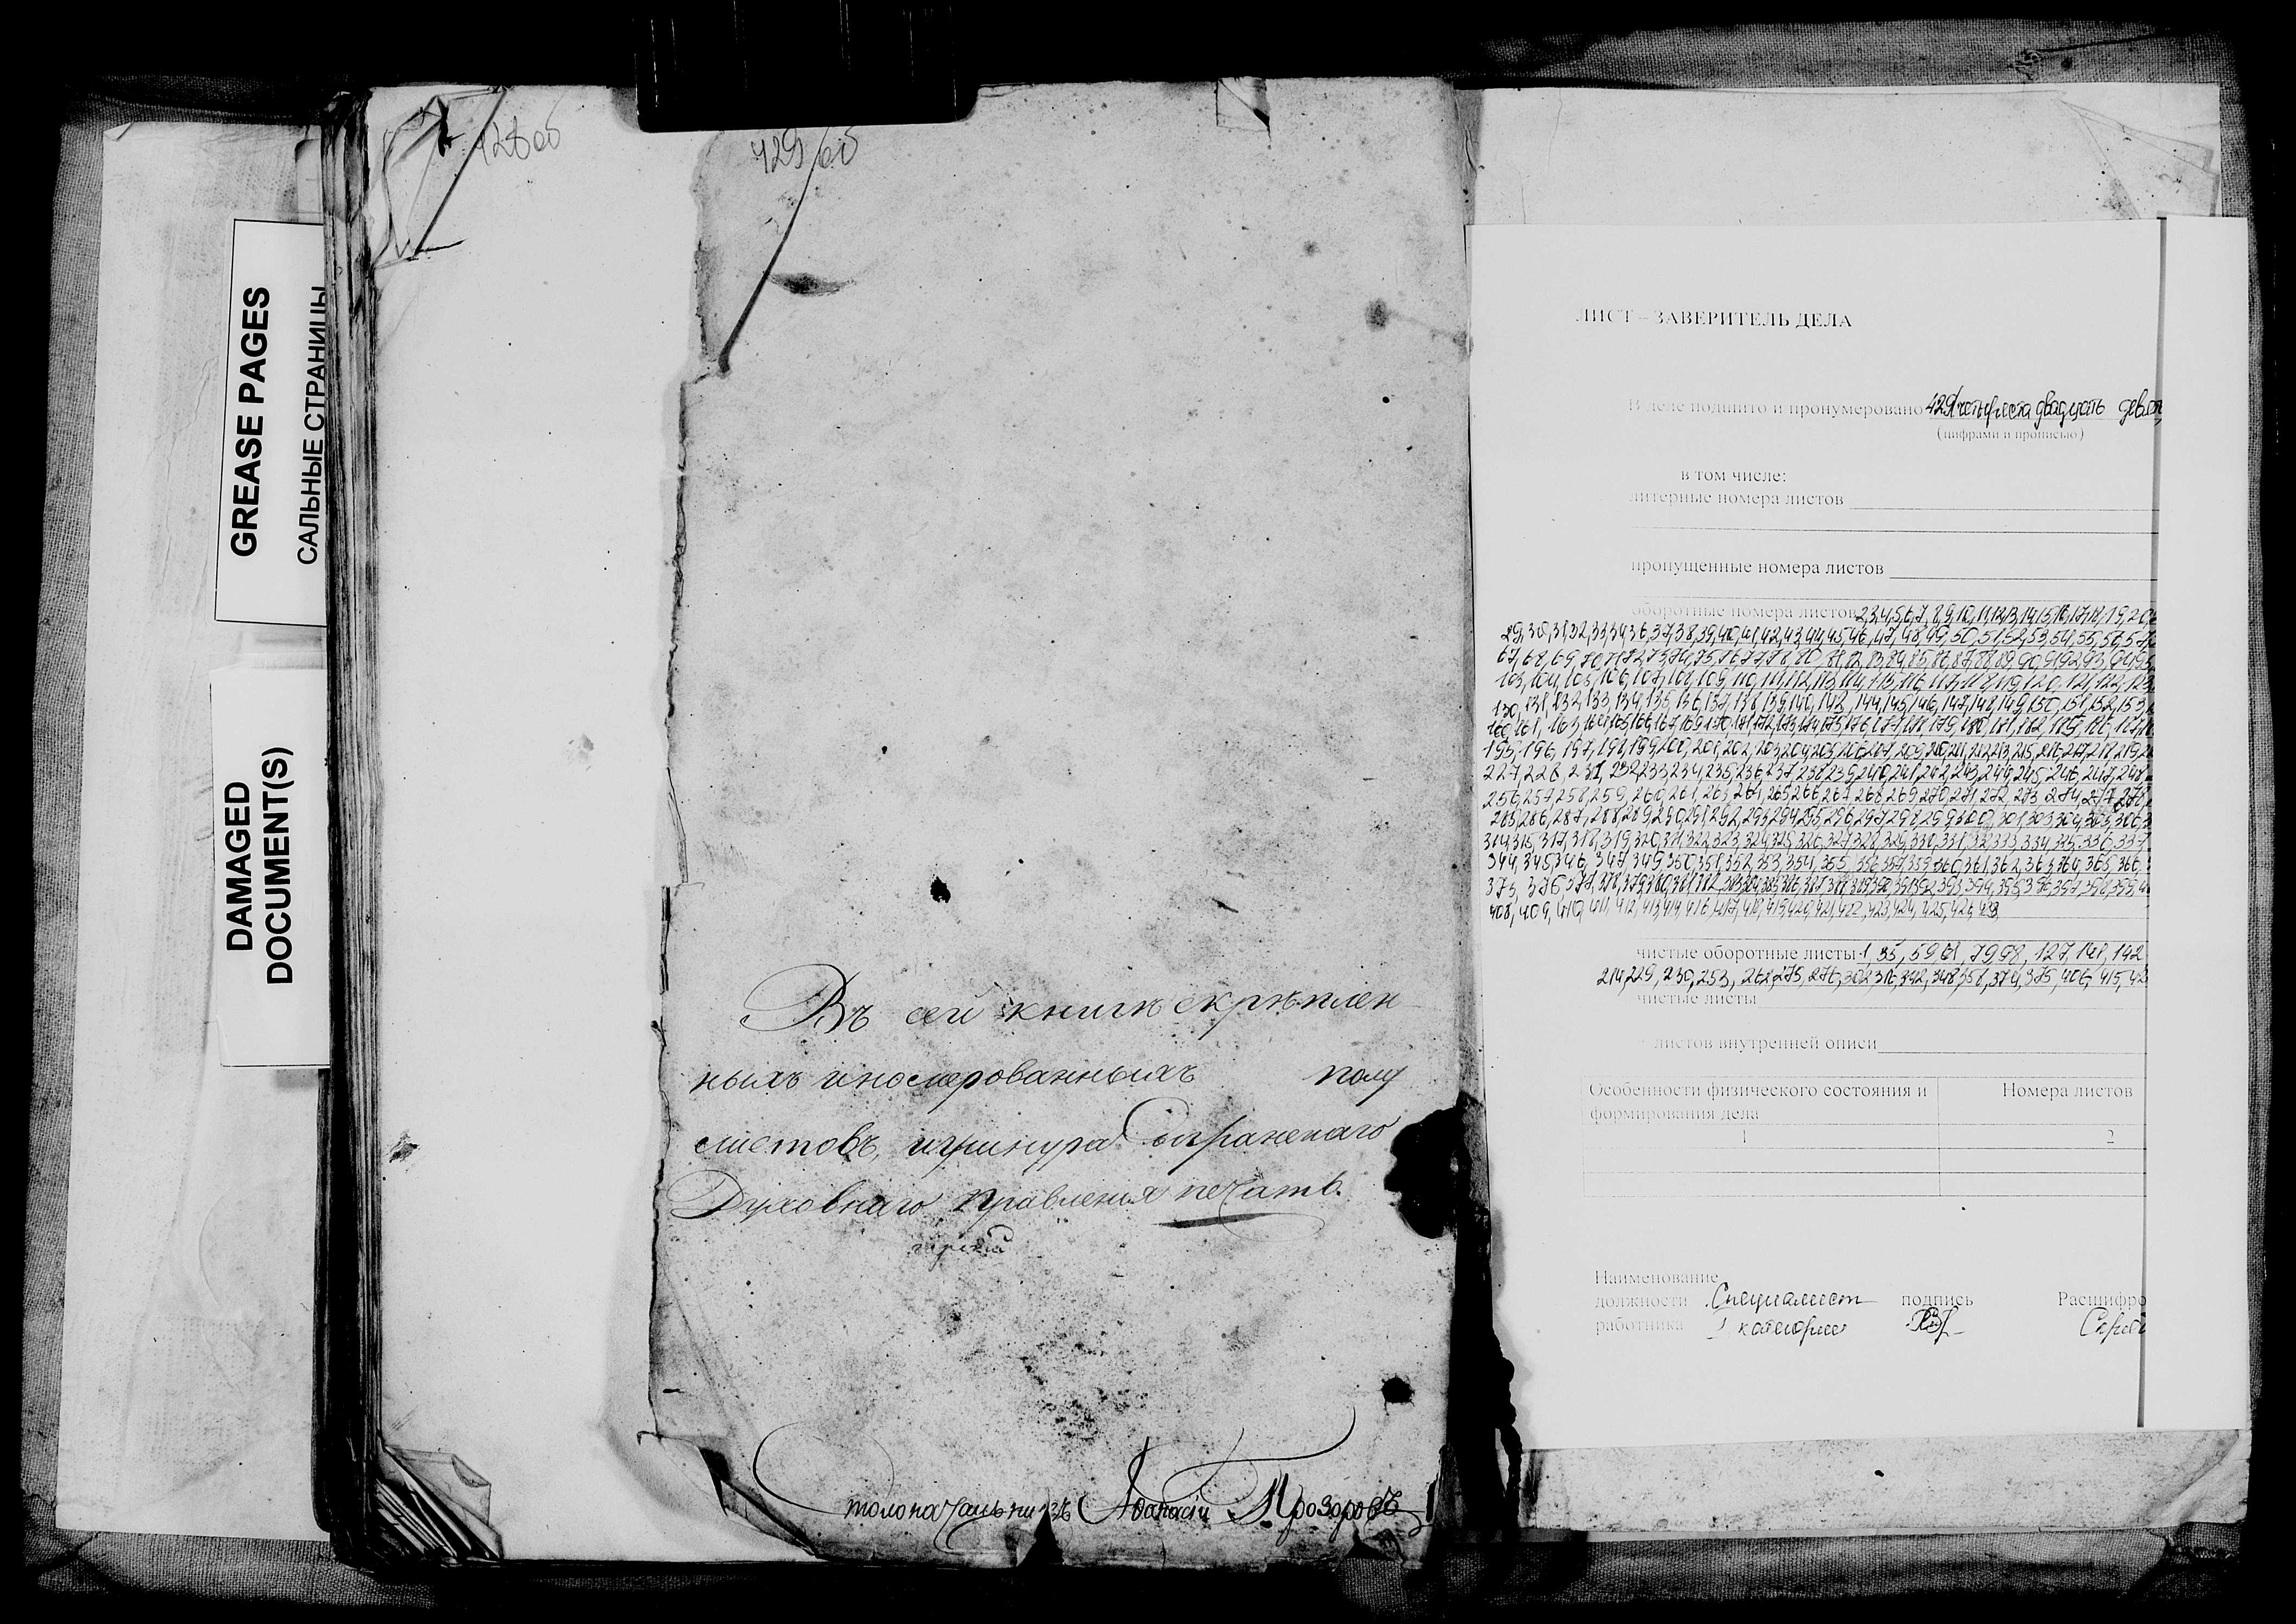 GREASE PAGES
САЛЬНЫЕ СТРАНИЦЫ
DAMAGED
DOCUMENT(S)
428об
429/об
Въ сей книгѣ скрѣплен
ныхъ иномерованныхъ полу
листовъ, ишнура Сызранскаго
Духовнаго Правленія печать.
Столоначальникъ Афанасій Прозоровъ
ЛИСТ – ЗАВЕРИТЕЛЬ ДЕЛА
В деле подшито и пронумеровано 429/четыреста двадцать девят
(цифрами и прописью)
в том числе:
литерные номера листов
пропущенные номера листов
оборотные номера листов 2,3,4,5,6,7,8,9,10,11,12,13,14,15,16,17,18,19,20,
29,30,31,32,33,34,36,37,38,39,40,41,42,43,44,45,46,47,48,49,50,51,52,53,54,55,56,57,
67,68,69,70,71,72,73,74,75,76,77,78,80,81,82,83,84,85,86,87,88,89,90,91,92,93,94,95,
103,104,105,106,107,108,109,110,111,112,113,114,115,116,117,118,119,120,121,122,123,
130,131,132,133,134,135,136,137,138,139,140,142,144,145,146,147,148,149,150,151,152,153,
195,196,197,198,199,200,201,202,203,204,205,206,207,209,210,211,212,213,215,216,217,218,219,
227,228,231,232,233,234,235,236,237,238,239,240,241,242,243,244,245,246,247,248,
256,257,258,259,260,261,263,264,265,266,267,268,269,270,271,272,273,274,277,278,
285,286,287,288,289,290,291,292,293,294,295,296,297,298,299,300,301,303,304,305,306,
314,315,317,318,319,320,321,322,323,324,325,326,327,328,329,330,331,332,333,334,335,336,337
344,345,346,347,349,350,351,352,353,354,355,356,357,359,360,361,362,363,364,365,366,
408,409,410,411,412,413,414,416,417,418,419,420,421,422,423,424,425,426,428
чистые оборотные листы 1,35,59,61,79,98,127,141,142
214,229,230,253,262,275,276,302,316,342,348,358,374,375,406,415,42
чистые листы
листов внутренней описи
Особенности физического состояния и формирования дела
Номера листов
1
2
Наименование
должности Специалист подпись Расшифро
работника 1 категории